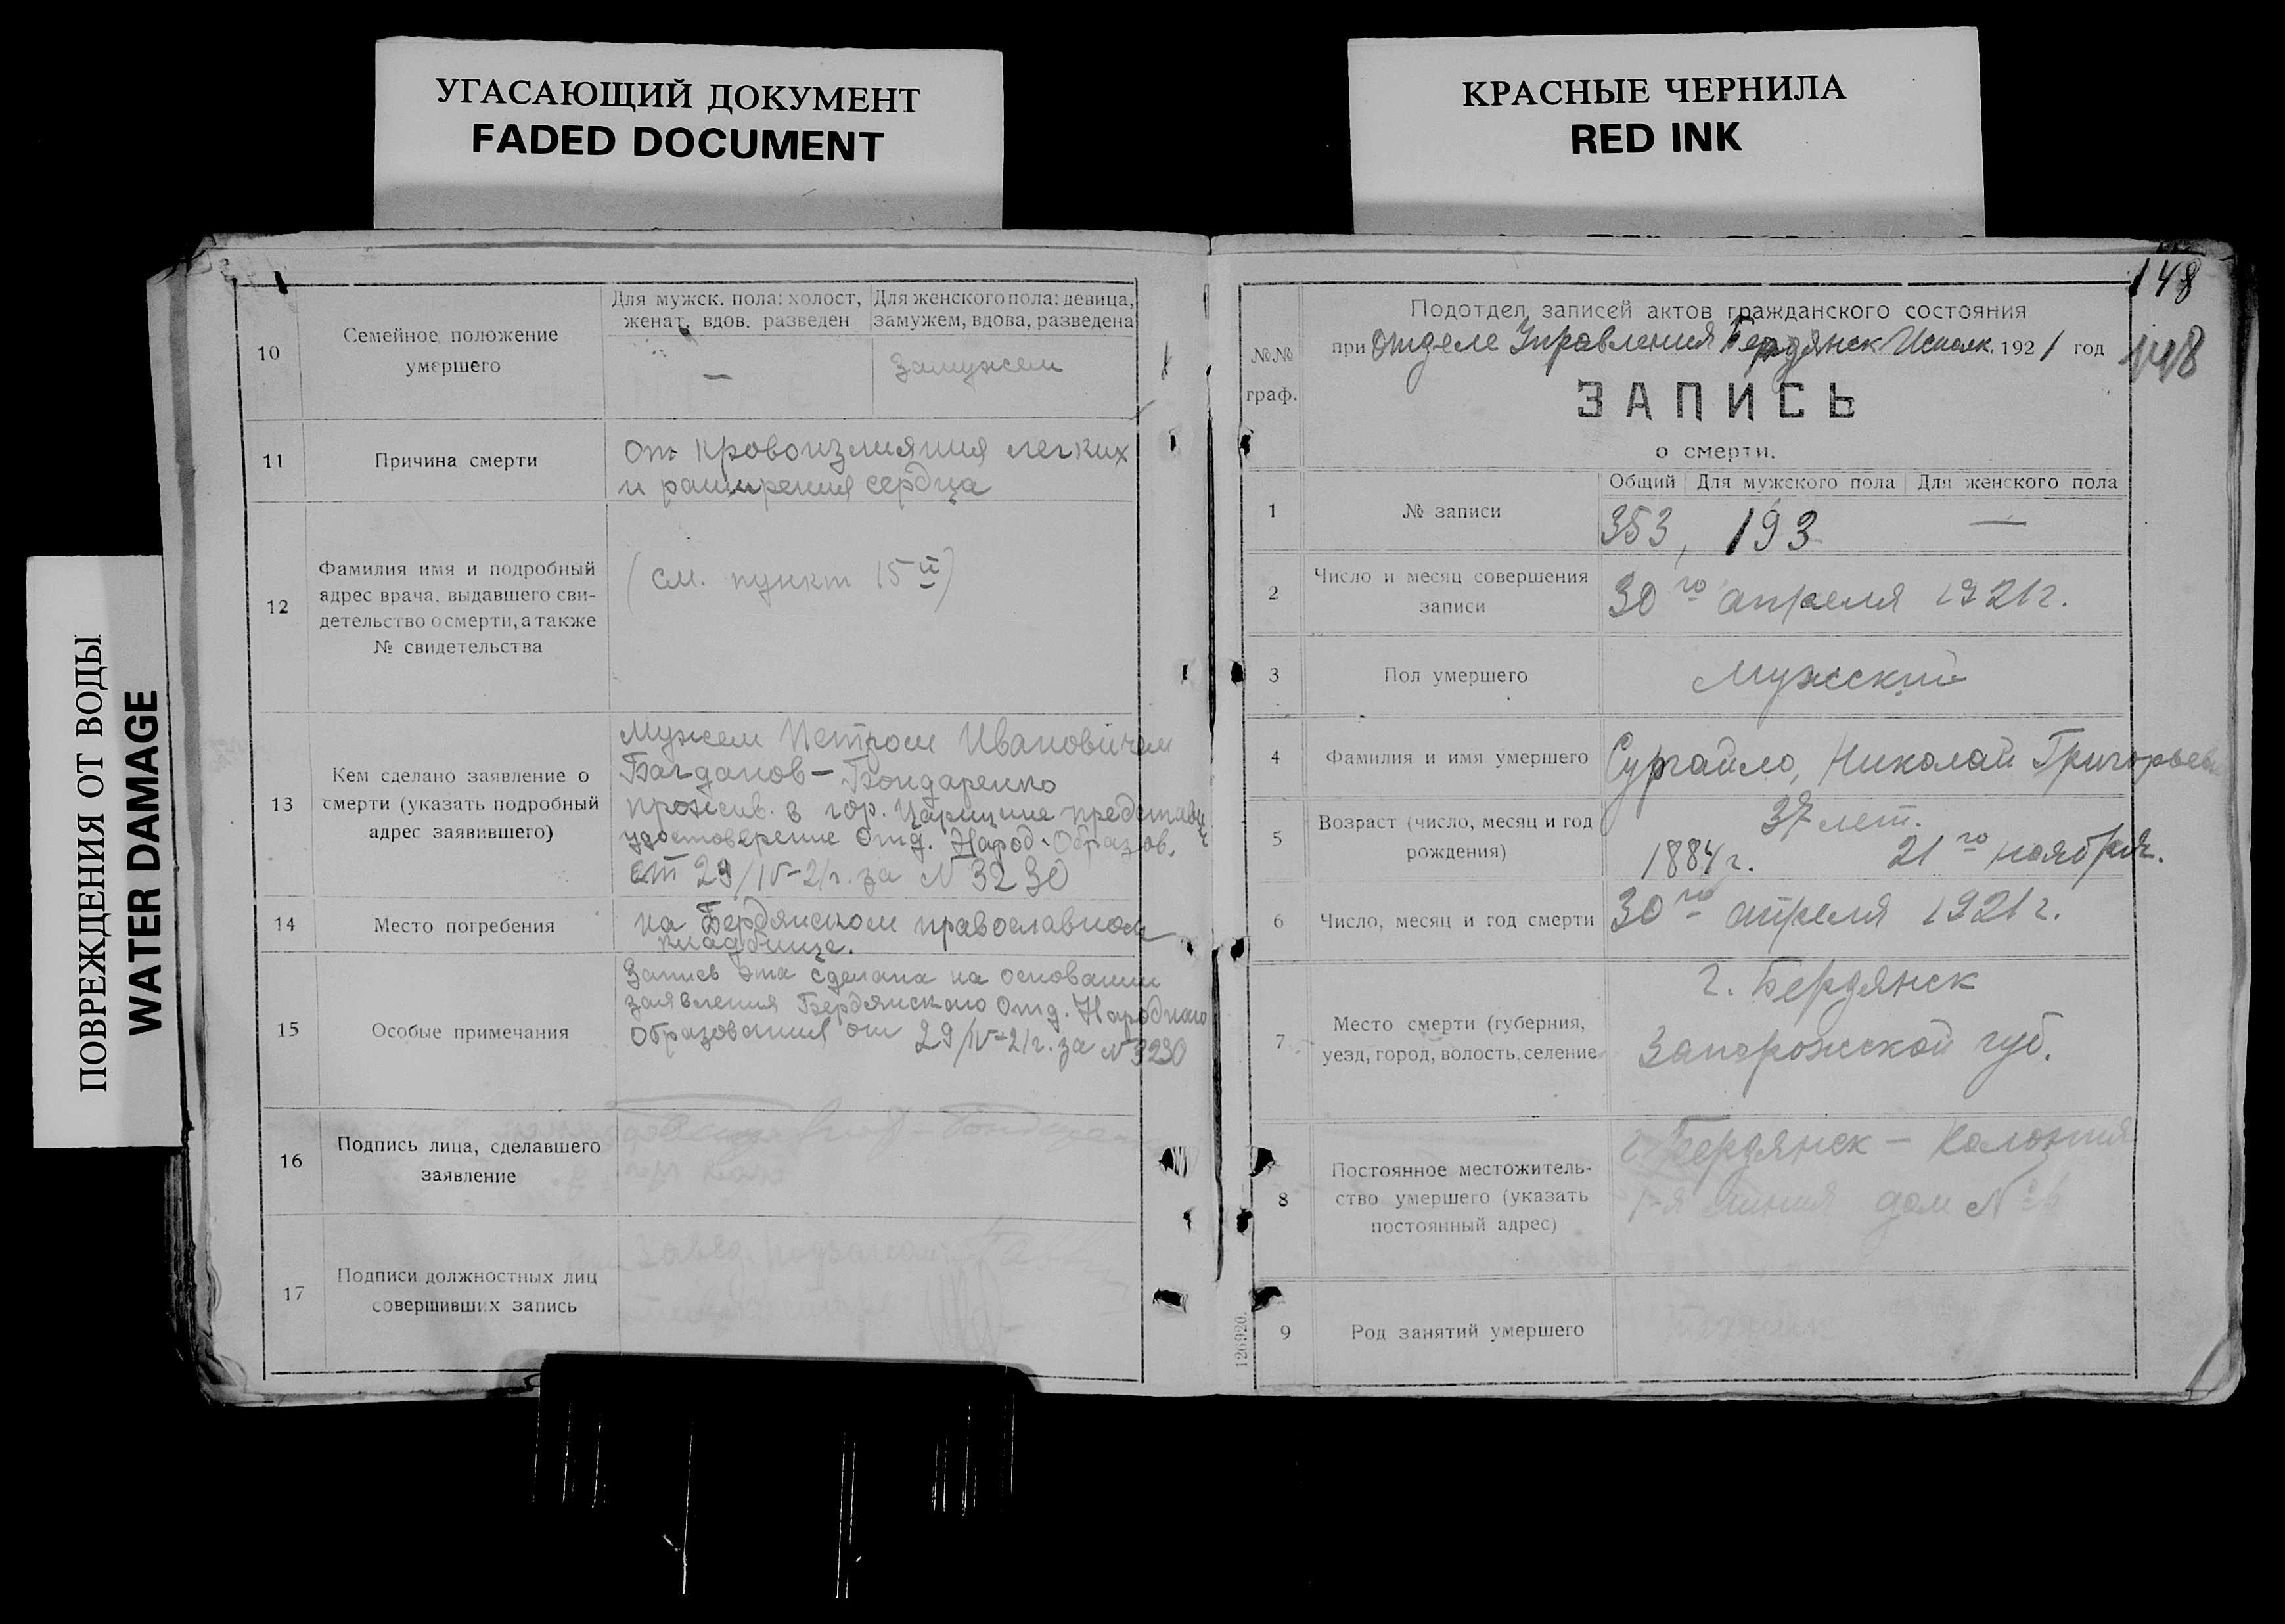 УГАСАЮЩИЙ ДОКУМЕНТ
FADED DOCUMENT
КРАСНЫЕ ЧЕРНИЛА
RED INK
ПОВРЕЖДЕНИЯ ОТ ВОДЫ
WATER DAMAGE
10
Семейное положение
умершего
Для мужск. пола: холост,
женат, вдов. разведен
Для женского пола: девица,
замужем, вдова, разведена
—
замужем
11
Причина смерти
От кровоизлияния легких
и расширения сердца
12
Фамилия имя и подробный
адрес врача, выдавшего сви-
детельство о смерти, а также
№ свидетельства
(см. пункт 15й)
13
Кем сделано заявление о
смерти (указать подробный
адрес заявившего)
Мужем Петром Ивановичем
Багданов-Бондаренко
прожив. в гор. Царицине
удостоверение Отд. Народ. Образов.
от 29/IV-21г. за N 3230
14
Место погребения
на Бердянском православном
кладбище.
15
Особые примечания
Запись эта сделана на основании
заявления Бердянскаго Отд. Народнаго
Образования от 29/IV-21г. за N 3230
16
Подпись лица, сделавшего
заявление
17
Подписи должностных лиц
совершивших запись
148
148
№№
граф.
Подотдел записей актов гражданского состояния
при Отделе Управления Бердянск Исполк. 1921 год
ЗАПИСЬ
о смерти.
1
№ записи
Общий Для мужского пола Для женского пола
353, 193 —
2
Число и месяц совершения
записи
30го апреля 1921г.
3
Пол умершего
Мужский
4
Фамилия и имя умершего
Сургайло, Николай Григорьев
5
Возраст (число, месяц и год
рождения)
37 лет.
1884г. 21го ноября.
6
Число, месяц и год смерти
30го апреля 1921г.
7
Место смерти (губерния,
уезд, город, волость, селение
г. Бердянск
Запорожской губ.
8
Постоянное местожитель-
ство умершего (указать
постоянный адрес)
г. Бердянск - Колония
1-я линия дом №
9
Род занятий умершего
126920.